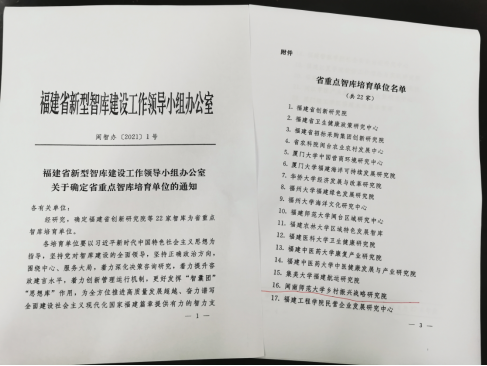 福建省新型智库建设工作领导小组办公室
闽智办〔2021〕1号
福建省新型智库建设工作领导小组办公室
关于确定省重点智库培育单位的通知
各有关单位：
经研究，确定福建省创新研究院等22家智库为省重点
智库培育单位。
各培育单位要以习近平新时代中国特色社会主义思想为
指导，坚持党对智库建设的全面领导，坚持正确政治方向，
围绕中心、服务大局，着力深化决策咨询研究，着力提升咨
政建言水平，着力创新管理运行机制，更好发挥“智囊团”
“思想库”作用，为全方位推进高质量发展超越，奋力谱写
全面建设社会主义现代化国家福建篇章提供有力的智力支
— 1 —
附件
省重点智库培育单位名单
（共22家）
1. 福建省创新研究院
2. 福建省卫生健康政策研究中心
3. 福建省招标采购集团创新研究院
4. 省农科院闽台农业农村发展中心
5. 厦门大学中国营商环境研究中心
6. 厦门大学福建海洋可持续发展研究院
7. 华侨大学经济发展与改革研究院
8. 福州大学福建绿色发展研究院
9. 福州大学海洋文化研究中心
10. 福建师范大学闽台区域研究中心
11. 福建农林大学区域特色发展智库
12. 福建医科大学卫生健康研究院
13. 福建中医药大学康复产业研究院
14. 福建中医药大学中医健康发展与产业研究院
15. 集美大学福建航运研究院
16. 闽南师范大学乡村振兴战略研究院
17. 福建工程学院民营企业发展研究中心
— 3 —